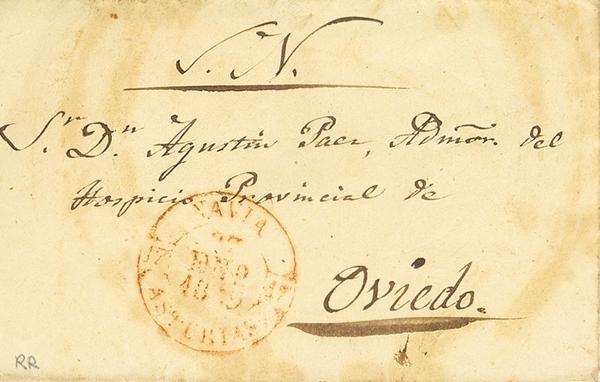 S. N.
Sr. Dn. Agustín Paez, Admor. del
Hospicio Provincial de
Oviedo.
NAVIA
27
ENO
ASTURIAS
RR